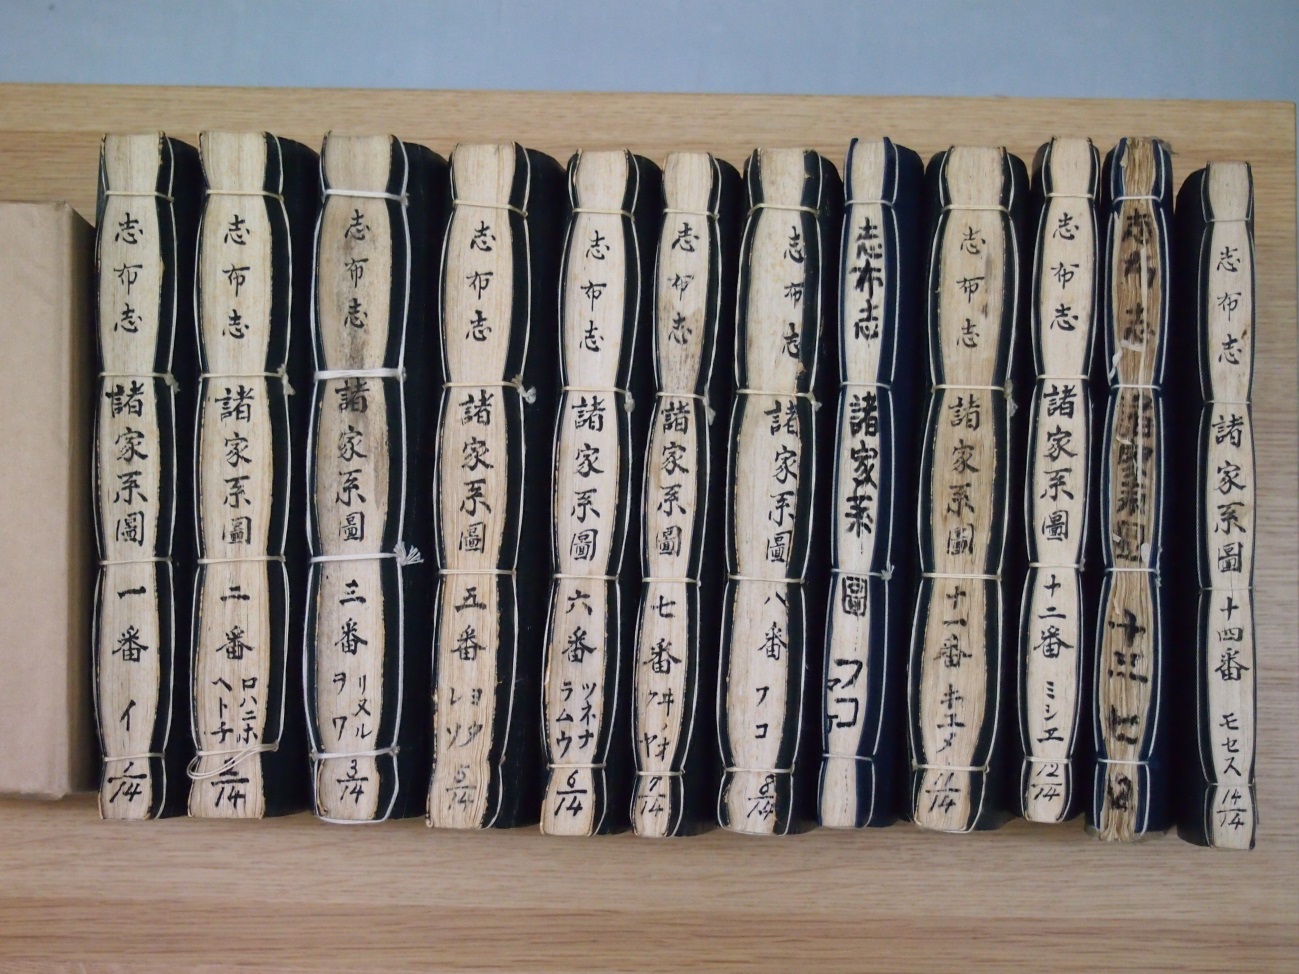 志布志 諸家系圖 一番 イ 1/14
志布志 諸家系圖 二番 ロハニホ ヘトチ 2/14
志布志 諸家系圖 三番 リヌル ヲワ 3/14
志布志 諸家系圖 五番 ヨタ レソ 5/14
志布志 諸家系圖 六番 ツネナ ラムウ 6/14
志布志 諸家系圖 七番 ヰノオ クヤ 7/14
志布志 諸家系圖 八番 フコ 8/14
志布志 諸家系圖 フコ
志布志 諸家系圖 十一番 キユメ 11/14
志布志 諸家系圖 十二番 ミシヱ 12/14
志布志 諸家系圖 十三
志布志 諸家系圖 十四番 モセス 14/14